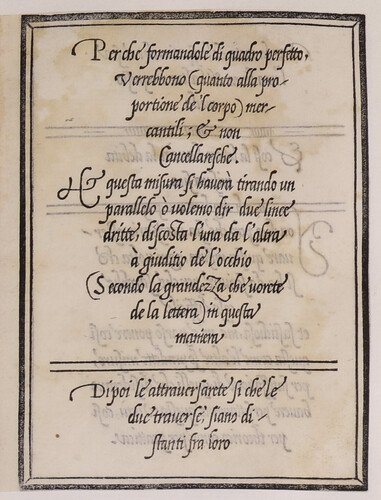 Perche formandole di quadro perfetto,
verrebbono (quanto alla pro-
portione de'l corpo) mer-
cantili; & non
Cancellaresche.
& questa misura si hauerà tirando un
parallelo ò volemo dir due linee
dritte, discosta l'una da l'altra
à giuditio de l'occhio
(Secondo la grandezza che vorete
de la lettera) in questa
maniera
Dipoi le attrauersarete si che le
due trauerse, siano di-
stanti fra loro